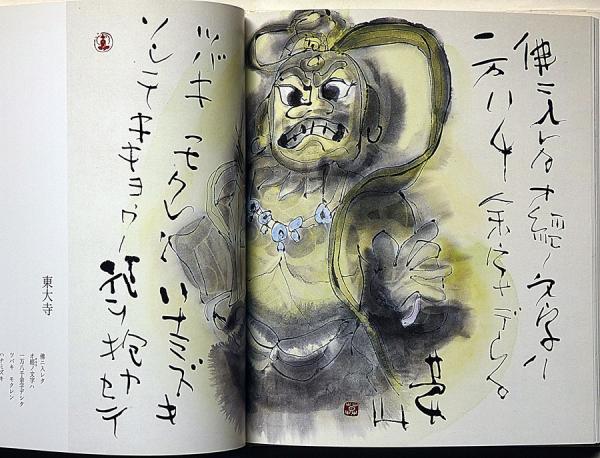 佛ニ入レタオ經ノ文字ハ
一万八千余字デシタ
ツバキ モクレン ハナミズキ
ソシテキキョウノ
抱カセテ
東大寺
佛ニ入レタ
オ経ノ文字ハ
一万八千余字デシタ
ツバキ モクレン
ハナミズキ